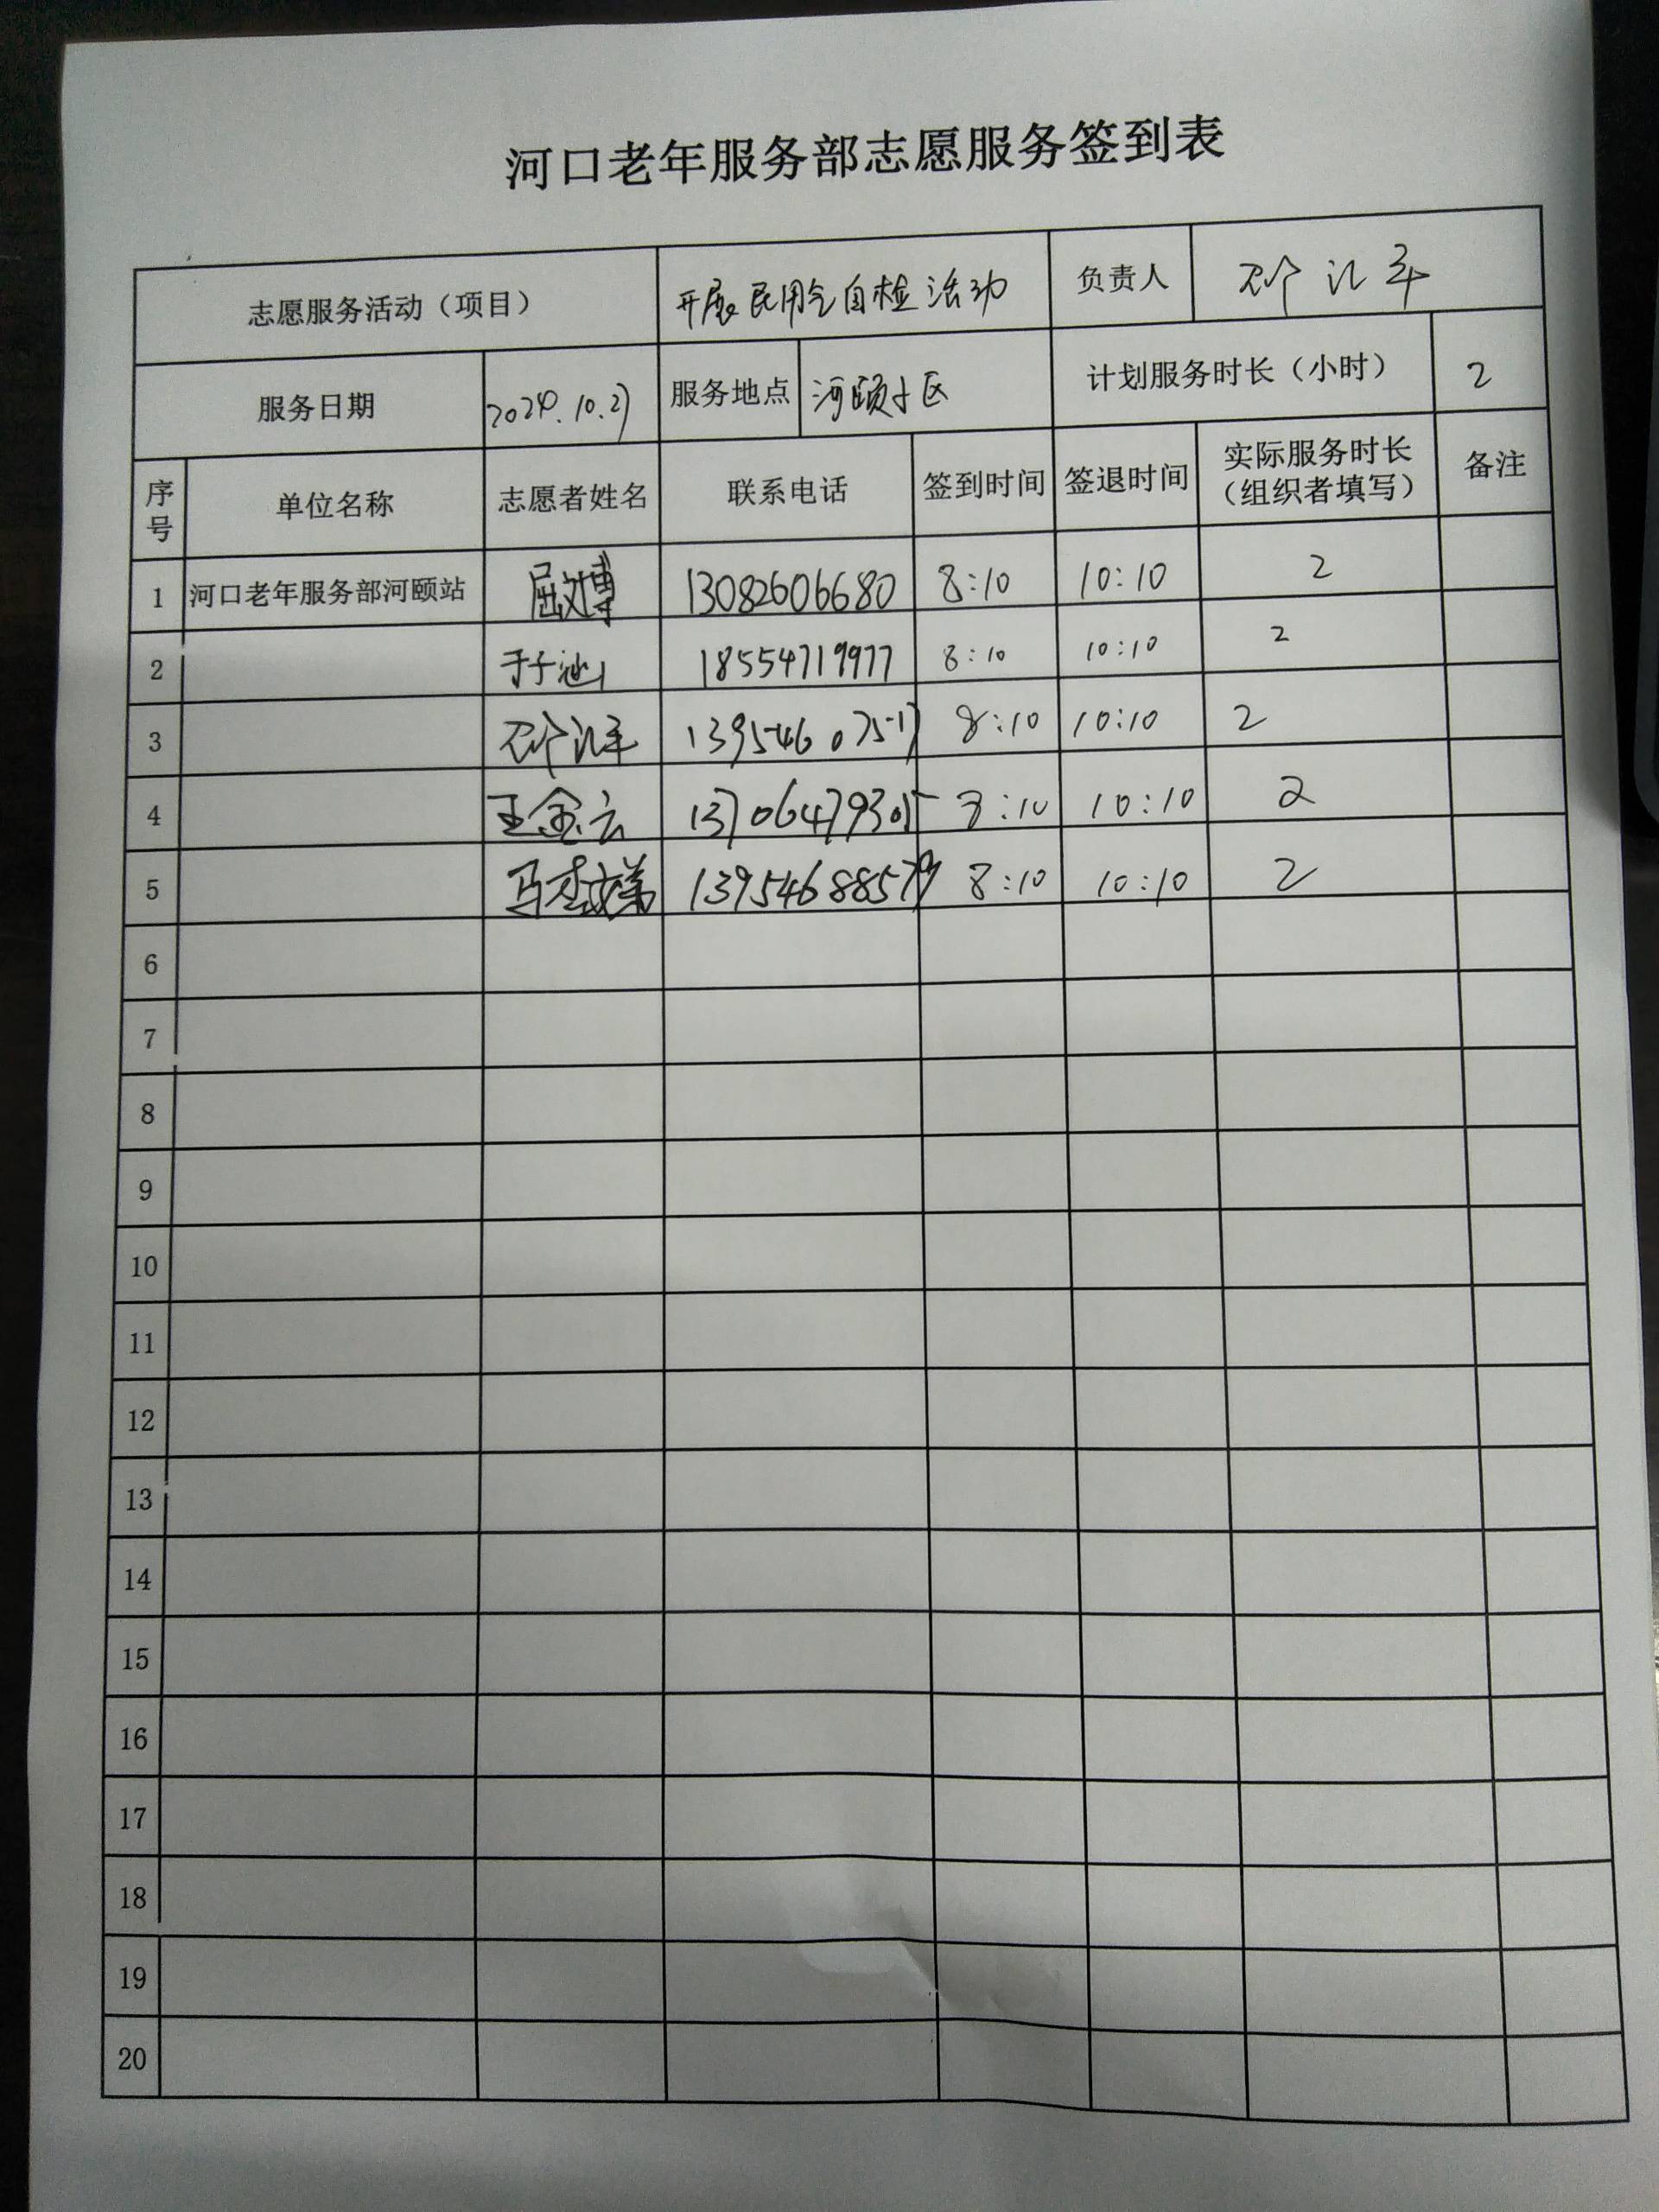 河口老年服务部志愿服务签到表
志愿服务活动（项目） 开展民用气自检活动 负责人
服务日期 2024.10.27 服务地点 河颐小区 计划服务时长（小时） 2
序号 单位名称 志愿者姓名 联系电话 签到时间 签退时间 实际服务时长（组织者填写） 备注
1 河口老年服务部河颐站 屈文博 13082606680 8:10 10:10 2
2 于子涵 18554719977 8:10 10:10 2
3 13954607517 8:10 10:10 2
4 王金云 13706479305 8:10 10:10 2
5 马 13954688579 8:10 10:10 2
6
7
8
9
10
11
12
13
14
15
16
17
18
19
20